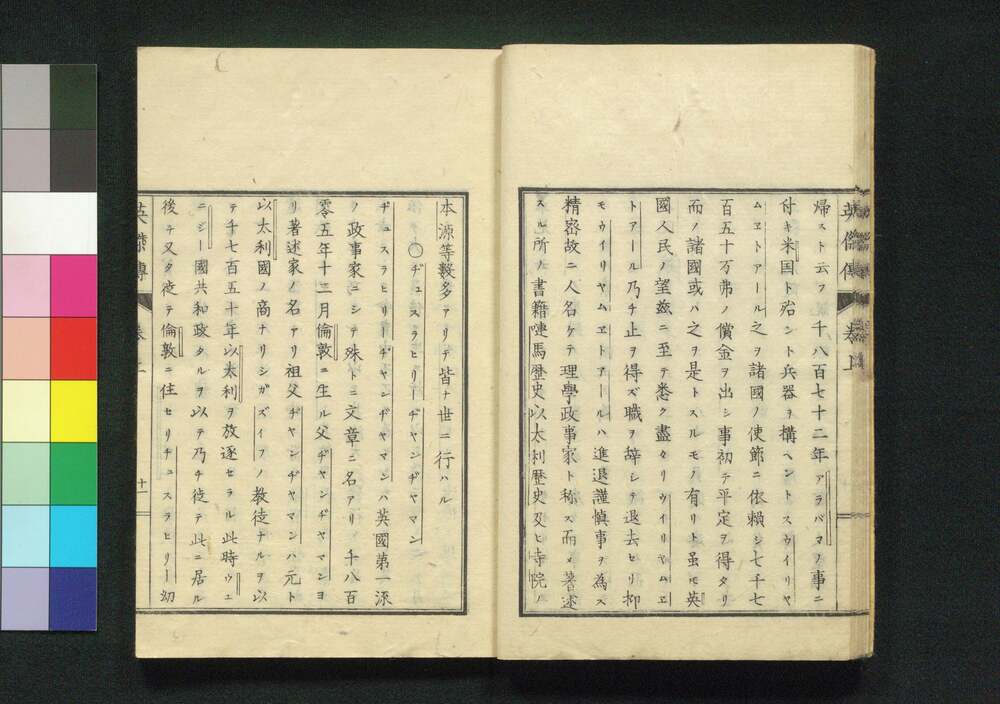 婦スト云フ千八百七十二年アラバマノ事ニ
付キ米国ト殆ント兵器ヲ搆ヘントスウイリヤ
ムヱトアール之ヲ諸國ノ使節ニ依頼シ七千七
百五十万弗ノ償金ヲ出シ事初テ平定ヲ得タリ
而ノ諸國或ハ之ヲ是トスルモノ有リト虽モ英
國人民ノ望玆ニ至テ悉ク盡タリウイリヤムヱ
トアール乃チ止ヲ得ズ職ヲ辞シテ退去セリ抑
モウイリヤムヱトアールハ進退謹慎事ヲ為ス
精密故ニ人名ケテ理學政事家ト称ス而メ著述
スル所ノ書籍唓馬歴史以太利歴史及ヒ寺院ノ
本源等數多アリテ皆ナ世ニ行ハル
○ヂュスラヒリーヂヤンヂヤマン
ヂュスラヒリーヂヤンヂヤマンハ英國第一流
ノ政事家ニシテ殊トニ文章ニ名アリ千八百
零五年十二月倫敦ニ生ル父ヂヤンヂヤマンヨ
リ著述家ノ名アリ祖父ヂヤンヂヤマンハ元ト
以太利國ノ商ナリシガズイフノ教徒ナルヲ以
テ千七百五十年以太利ヲ放逐セラル此時ウエ
ニシー國共和政タルヲ以テ乃チ徙テ此ニ居ル
後テ又タ徙テ倫敦ニ住セリヂュスラヒリー幼
英傑傳 巻上 十一
英傑傳 巻上